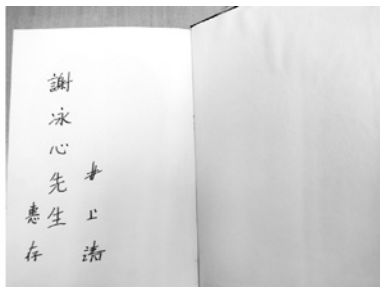 謝冰心先生
惠存
井上靖